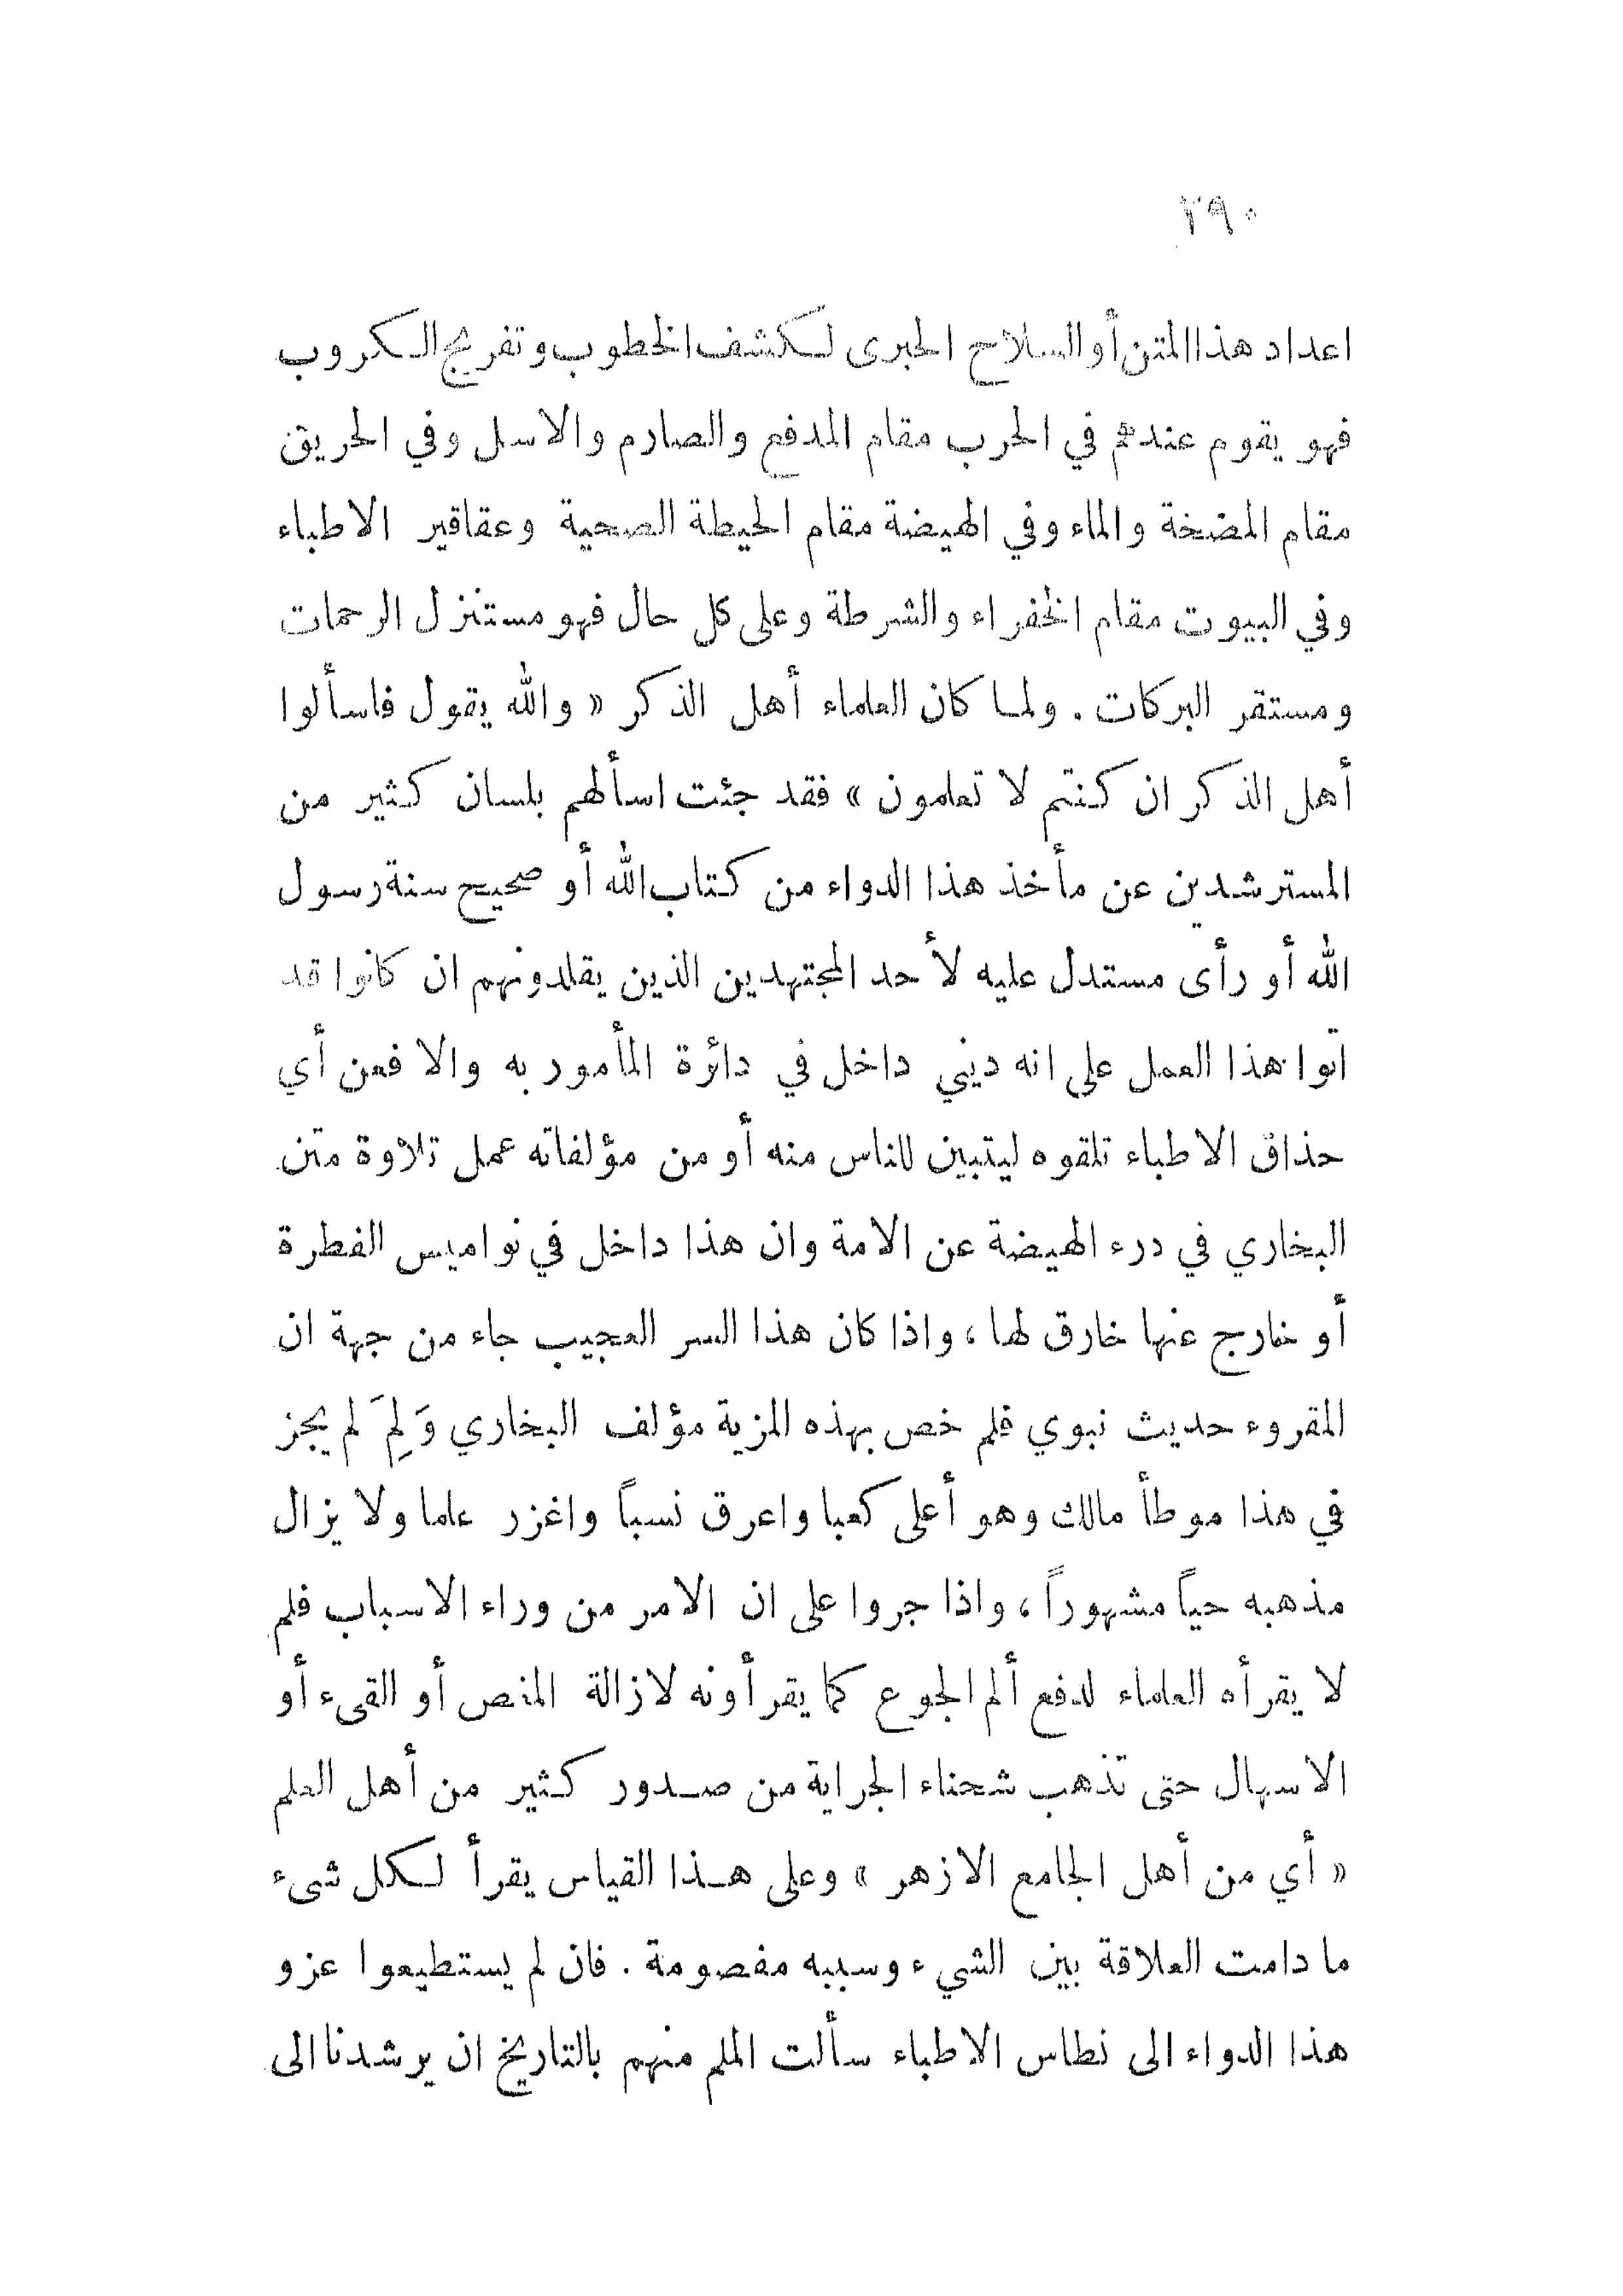 ٢٩٠
اعداد هذا المتن أو السلاح الحبرى لكشف الخطوب وتفريج الكروب
فهو يقوم عندهم في الحرب مقام المدفع والصارم والاسل وفي الحريق
مقام المضخة والماء وفي الهيضة مقام الحيطة الصحية وعقاقير الاطباء
وفي البيوت مقام الخفراء والشرطة وعلى كل حال فهو مستنزل الرحمات
ومستقر البركات . ولما كان العلماء أهل الذكر « والله يقول فاسألوا
أهل الذكر ان كنتم لا تعلمون » فقد جئت اسألهم بلسان كثير من
المسترشدين عن مأخذ هذا الدواء من كتاب الله أو صحيح سنة رسول
الله أو رأى مستدل عليه لأحد المجتهدين الذين يقلدونهم ان كانوا قد
اتوا هذا العمل على انه ديني داخل في دائرة المأمور به والا فعن أي
حذاق الاطباء تلقوه ليتبين للناس منه أو من مؤلفاته عمل تلاوة متن
البخاري في درء الهيضة عن الامة وان هذا داخل في نواميس الفطرة
أو خارج عنها خارق لها ، واذا كان هذا السر العجيب جاء من جهة ان
المقروء حديث نبوي فلم خص بهذه المزية مؤلف البخاري وَلِمَ لم يجز
في هذا موطأ مالك وهو أعلى كعبا واعرق نسباً واغزر علما ولا يزال
مذهبه حياً مشهوراً ، واذا جروا على ان الامر من وراء الاسباب فلم
لا يقرأه العلماء لدفع ألم الجوع كما يقرأونه لازالة المغص أو القىء أو
الاسهال حتى تذهب شحناء الجراية من صدور كثير من أهل العلم
« أي من أهل الجامع الازهر » وعلى هذا القياس يقرأ لكل شىء
ما دامت العلاقة بين الشيء وسببه مفصومة . فان لم يستطيعوا عزو
هذا الدواء الى نطاس الاطباء سألت الملم منهم بالتاريخ ان يرشدنا الى